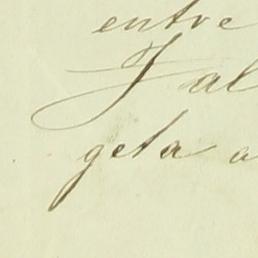 entre
J al
geta a